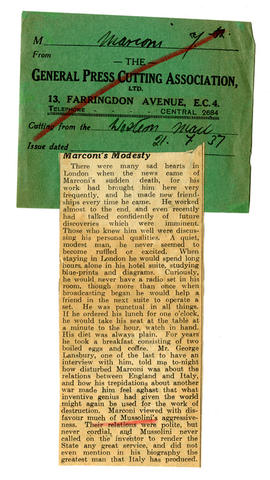 M Marconi
From
— THE —
GENERAL PRESS CUTTING ASSOCIATION,
LTD.
13, FARRINGDON AVENUE, E.C.4.
TELEPHONE CENTRAL 2684
Cutting from the Western Mail
Issue dated 21. 7. 37
Marconi's Modesty
There were many sad hearts in
London when the news came of
Marconi's sudden death, for his
work had brought him here very
frequently, and he made new friend-
ships every time he came. He worked
almost to the end, and even recently
had talked confidently of future
discoveries which were imminent.
Those who knew him well were discus-
sing his personal qualities. A quiet,
modest man, he never seemed to
become ruffled or excited. When
staying in London he would spend long
hours, alone in his hotel suite, studying
blue-prints and diagrams. Curiously,
he would never have a radio set in his
room, though more than once when
broadcasting began he would help a
friend in the next suite to operate a
set. He was punctual in all things.
If he ordered his lunch for one o'clock,
he would take his seat at the table at
a minute to the hour, watch in hand.
His diet was always plain. For years
he took a breakfast consisting of two
boiled eggs and coffee. Mr. George
Lansbury, one of the last to have an
interview with him, told me to-night
how disturbed Marconi was about the
relations between England and Italy,
and how his trepidations about another
war made him feel aghast that what
inventive genius had given the world
might again be used for the work of
destruction. Marconi viewed with dis-
favour much of Mussolini's aggressive-
ness. Their relations were polite, but
never cordial, and Mussolini never
called on the inventor to render the
State any great service, and did not
even mention in his biography the
greatest man that Italy has produced.